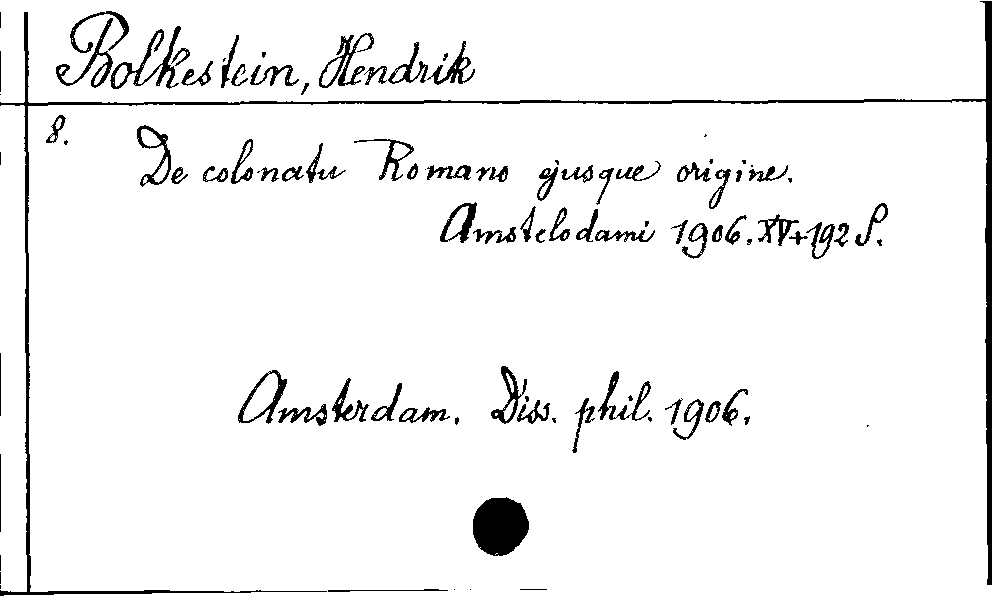 Bolkestein, Hendrik
8.
De colonatu Romano ejusque origine.
Amstelodami 1906. XV+192 S.
Amsterdam. Diss. phil. 1906.